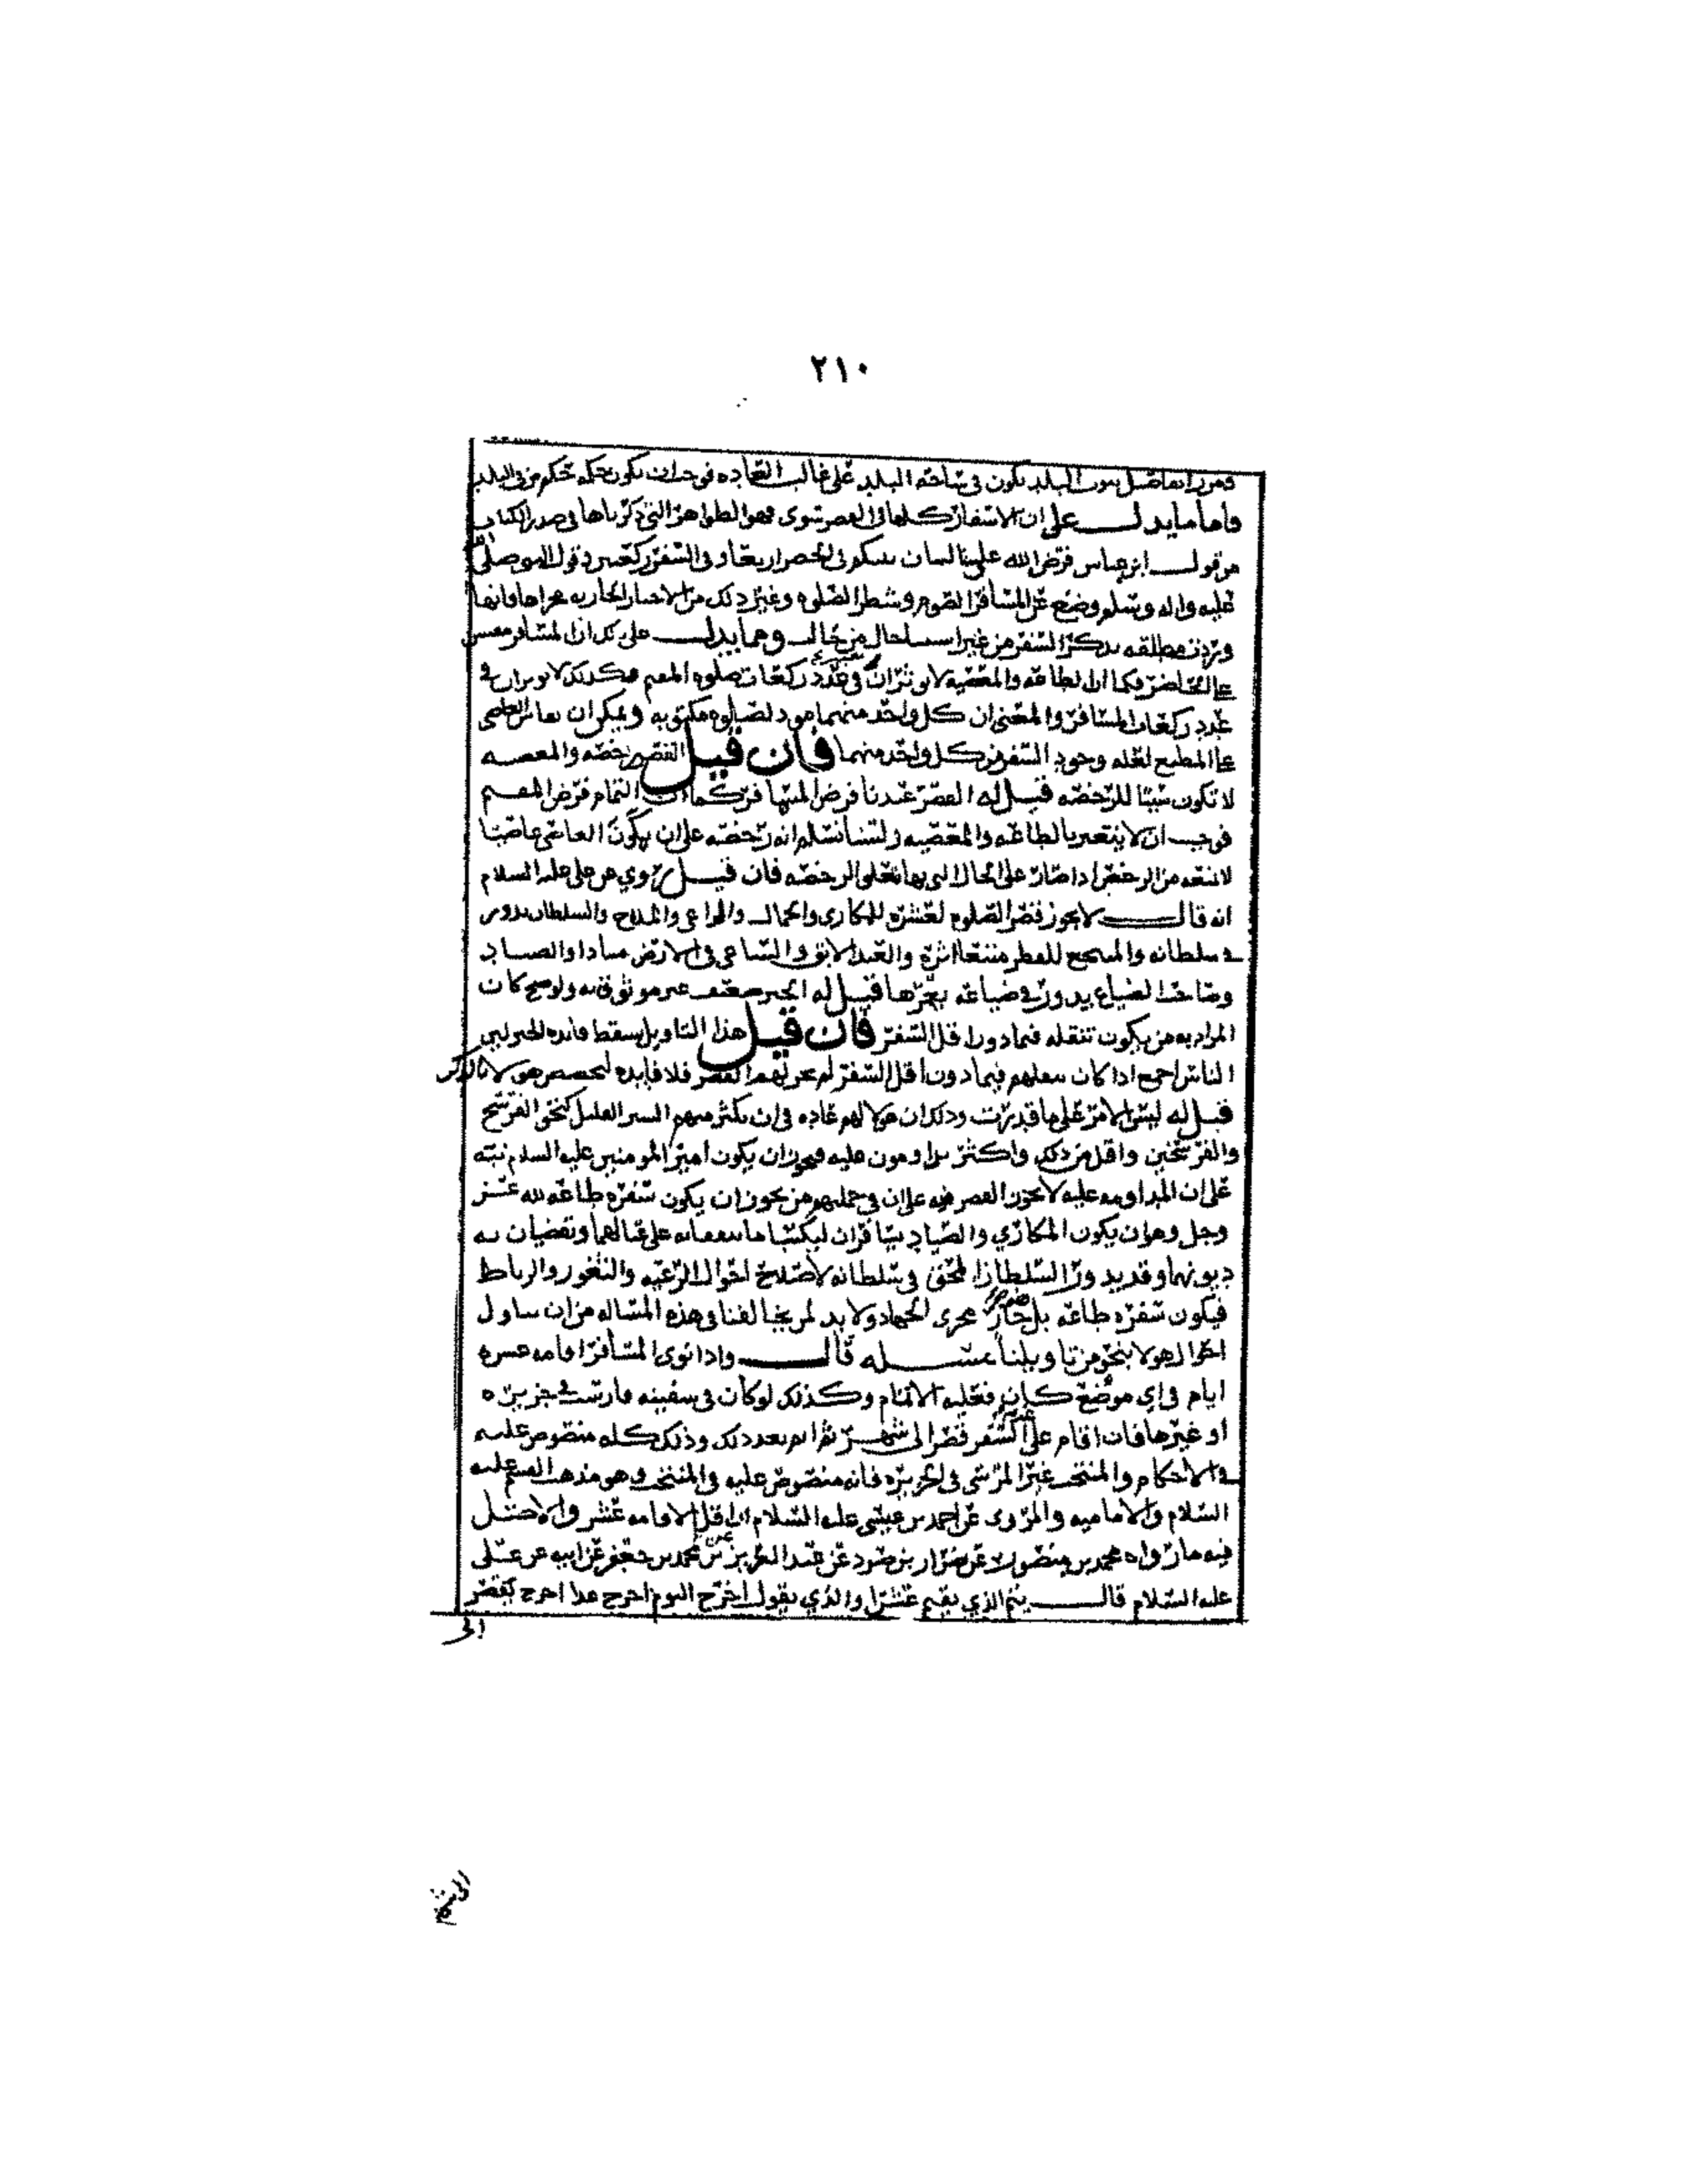 ٢١٠
البلد يكون في ساحة البلد على غالب العادة فوجب ان يكون حكمه حكم من في البلد
واما ما يدل على ان الاسفار كلها في القصر سوى فهو الظواهر التي ذكرناها في صدر الكتاب
من قول ابن عباس فرض الله على لسان نبيكم في الحضر اربعا وفي السفر ركعتين وقول النبي صلى الله
عليه واله وسلم وضع عن المسافر الصوم وشطر الصلوة وغير ذلك من الاخبار الجارية مجراها فانها
وردت مطلقه بذكر السفر من غير حال من حال ومما يدل على ذلك ان المسافر مقيس
على الحاضر فكما ان الطاعه والمعصية لا توثران في عدد ركعات صلوة المقيم فكذلك لا توثران في
عدد ركعات المسافر والمعنى ان كل واحد منهما مود لصلوة مكتوبه ويمكن ان يقاس العاصي
على المطيع لعله وجود السفر من كل واحد منهما فان قيل القصر رخصه والمعصيه
لا تكون سببا للرخصه قيل له القصر عندنا فرض المسافر كما ان التمام فرض المقيم
فوجب ان لا يتغير بالطاعه والمعصيه ولسنا نسلم انه رخصه على ان يكون العاصي عاصيا
لا يمنعه من الرخص اذا صار على الحال التي بها تعلق الرخصه فان قيل روي عن علي عليه السلام
انه قال لا يجوز قصر الصلوة لعشرة للمكاري والجمال والراعي والملاح والسلطان يدور
في سلطانه والمنتجع للقطر متتبعا اثره والعبد الابق والساعي في الارض فسادا والصياد
وصاحب الضياع يدور في ضياعه يعمرها قيل له الخبر ضعيف غير موثوق به ولو صح كان
المراد به من يكون تنقله فيما دون اقل السفر فان قيل هذا التاويل يسقط فايده الخبر لان
الناس اجمع اذا كان تنقلهم فيما دون اقل السفر لم يجز لهم القصر فلا فايده لتخصيص هولا بالذكر
قيل له ليس الامر على ما قدرت وذلك ان هولا لهم عاده في ان يكثر منهم السير القليل كنحو الفرسخ
والفرسخين واقل من ذلك واكثر يداومون عليه فيجوز ان يكون امير المومنين عليه السلام نبه
على ان المداومه عليه لا تجوز القصر فيه على ان في جملتهم من يجوز ان يكون سفره طاعه لله عز
وجل وهو ان يكون المكاري والصياد يسافران ليكتسبا ما ينفقانه على عيالهما ويقضيان به
ديونهما وقد يدور السلطان المحق في سلطانه لاصلاح احوال الرعيه والثغور والرباط
فيكون سفره طاعه بل جار مجرى الجهاد ولا بد لمن يخالفنا في هذه المساله من ان يتاول
احوال هولا بنحو من تاويلنا مسئله قال واذا نوى المسافر اقامه عشره
ايام في اي موضع كان فعليه الاتمام وكذلك لو كان في سفينه فارست في جزيره
او غيرها فان اقام على السفر قصر الى شهر ثم اتم بعد ذلك وذلك كله منصوص عليه
في الاحكام والمنتخب غير المرسى في الجزيره فانه منصوص عليه في المنتخب وهو مذهب القسم عليه
السلام والاماميه والمروى عن احمد بن عيسى عليه السلام ان اقل الاقامه عشر والاصل
فيه ما رواه محمد بن منصور عن ضرار بن صرد عن عبد العزيز بن محمد عن جعفر عن ابيه عن علي
عليه السلام قال يتم الذي يقيم عشرا والذي يقول اخرج اليوم اخرج غدا اخرج يقصر
الى